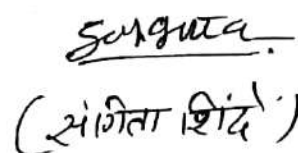 Sangita
(संगिता शिंदे)